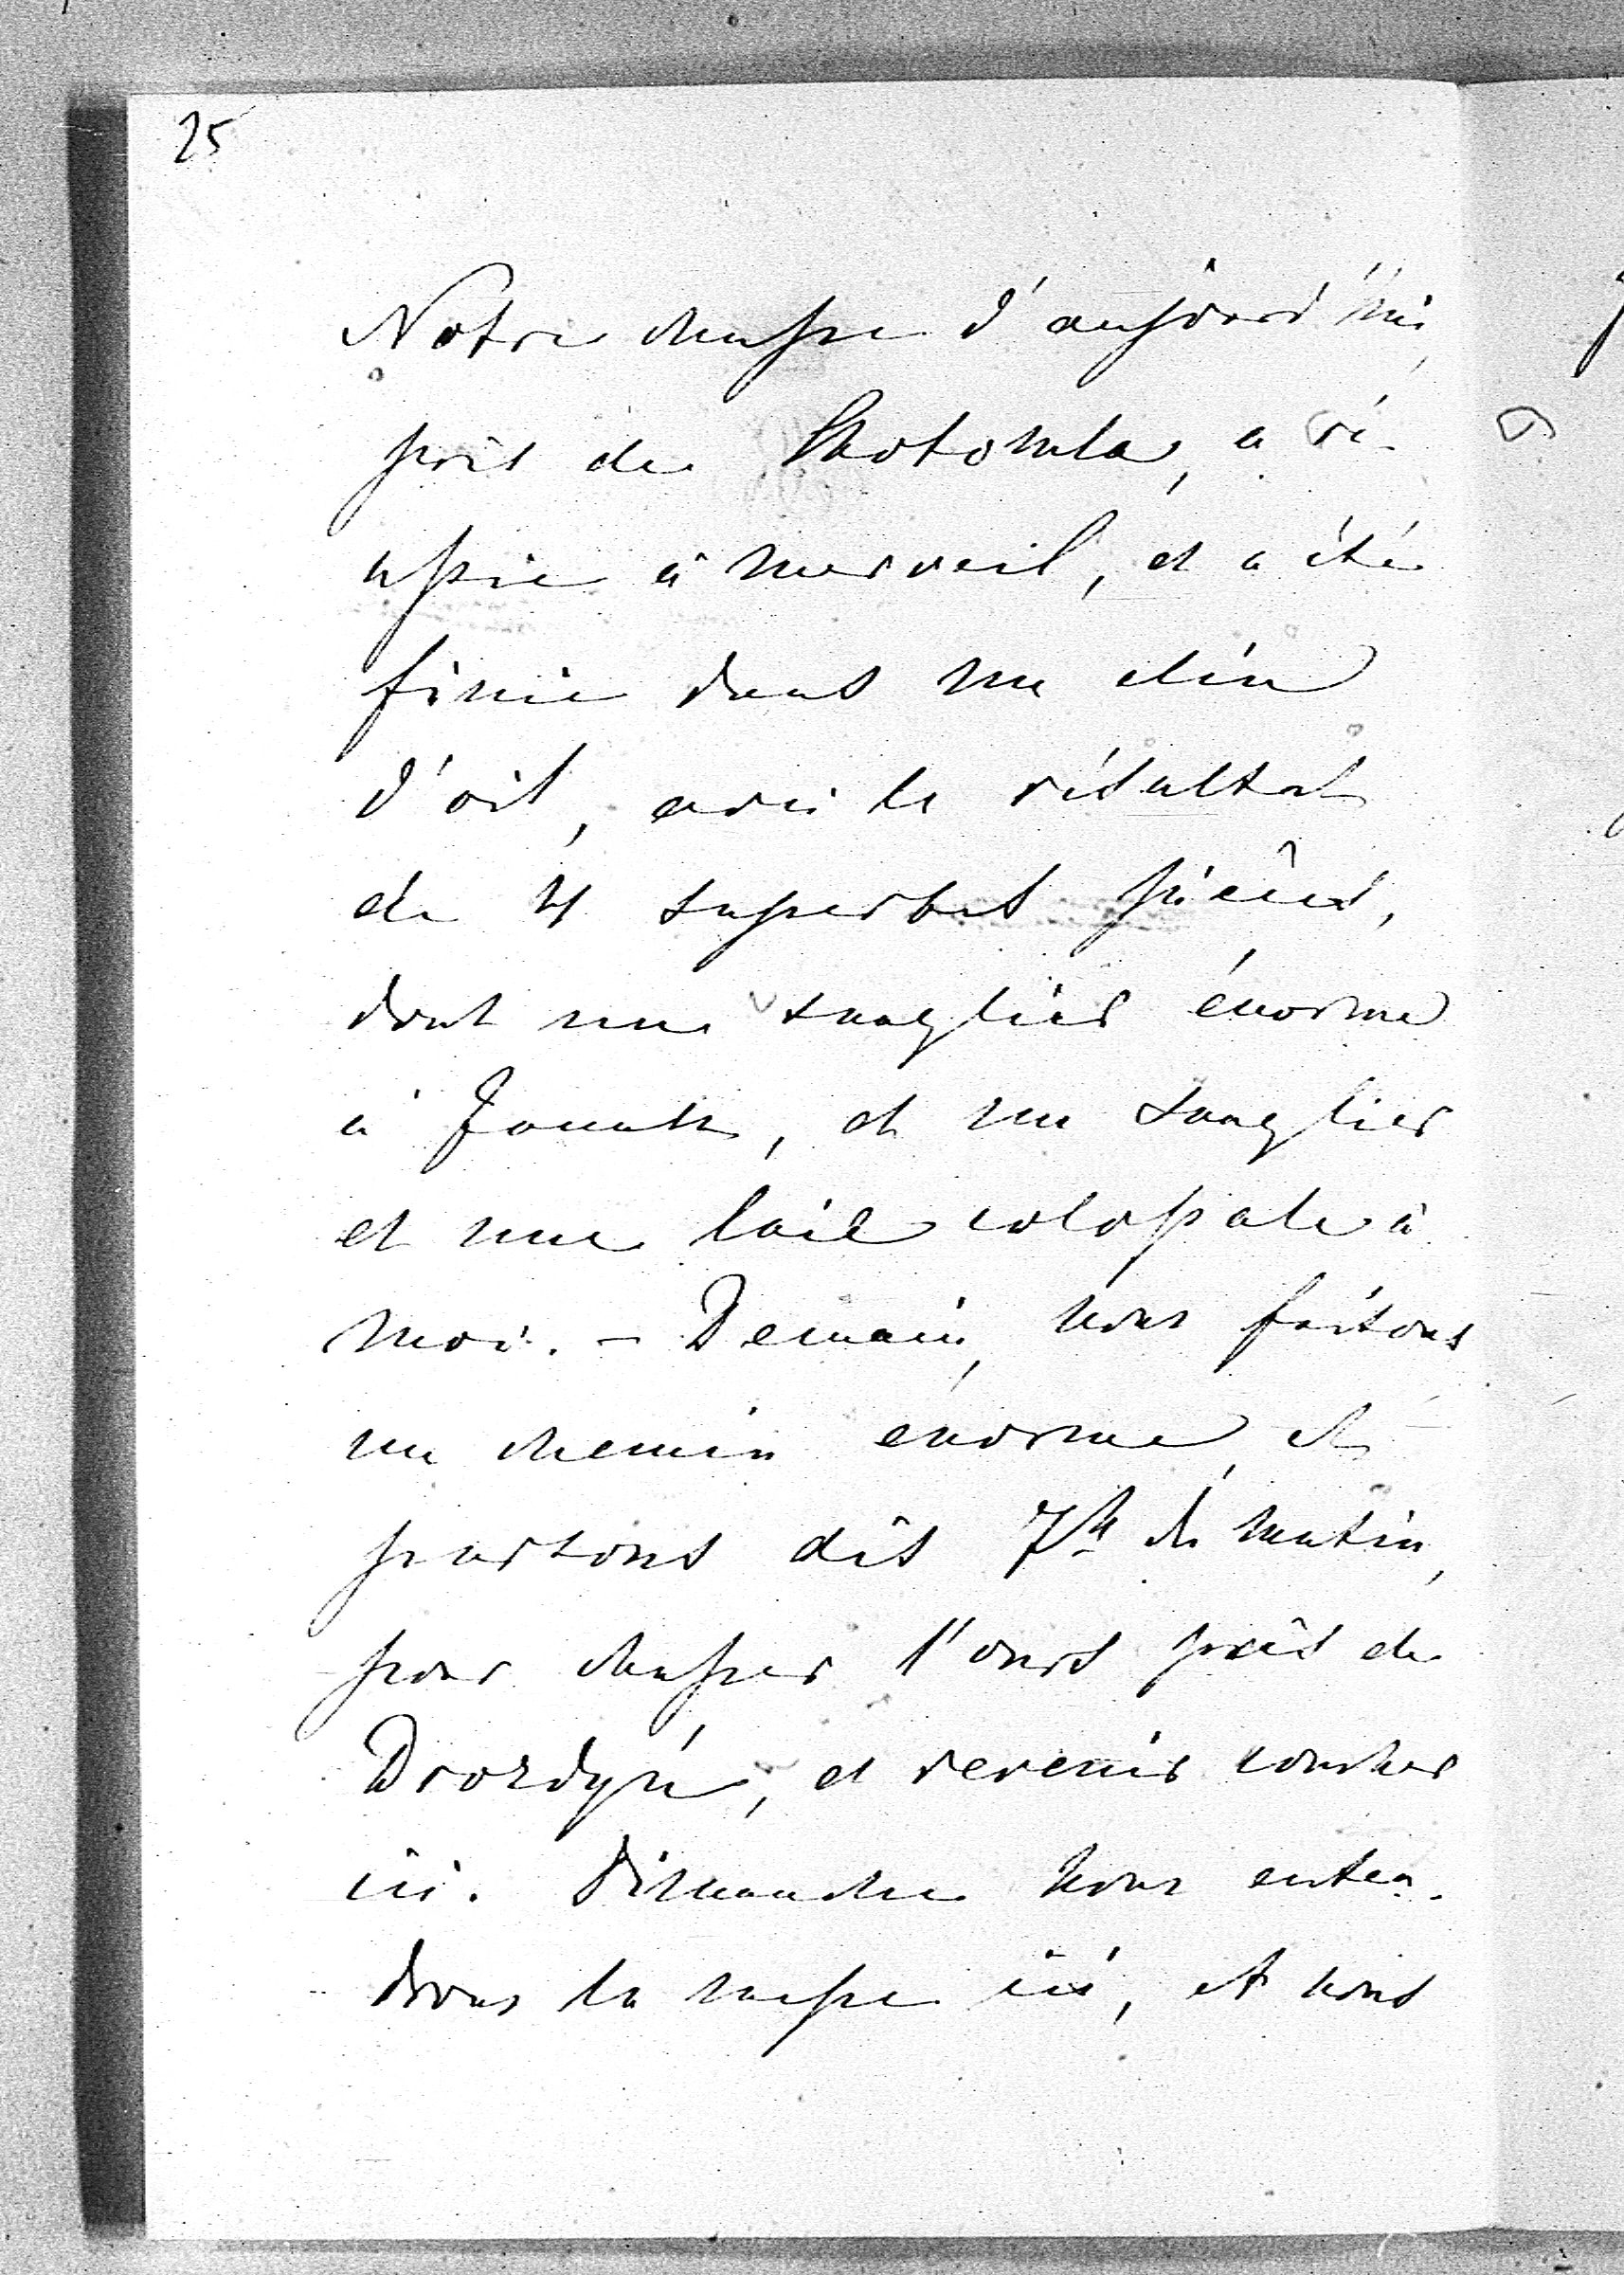 25
Notre chasse d'aujourd'hui
près de Khotomla, a ré-
ussie à merveil, et a été
finie dans un clin
d'oil, avec le résultat
de 4 superbes pièces,
dont une sanglier énorme
à , et un sanglier
et une laie colossale à
moi. – Demain, nous faisons
un chemin énorme, et
partons dès 7h du matin,
pour chasser l'ours près de
Drozdyń, et revenir coucher
ici. Dimanche nous enten-
drons la messe ici, et nous